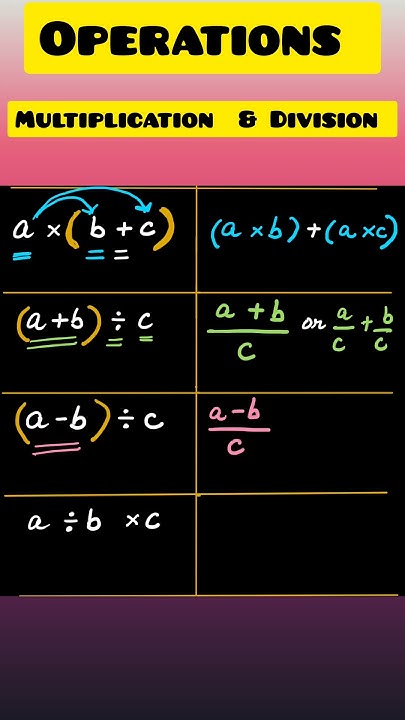 OPERATIONS
MULTIPLICATION & DIVISION
a × (b + c) (a × b) + (a × c)
(a + b) ÷ c a + b / c or a/c + b/c
(a - b) ÷ c a - b / c
a ÷ b × c